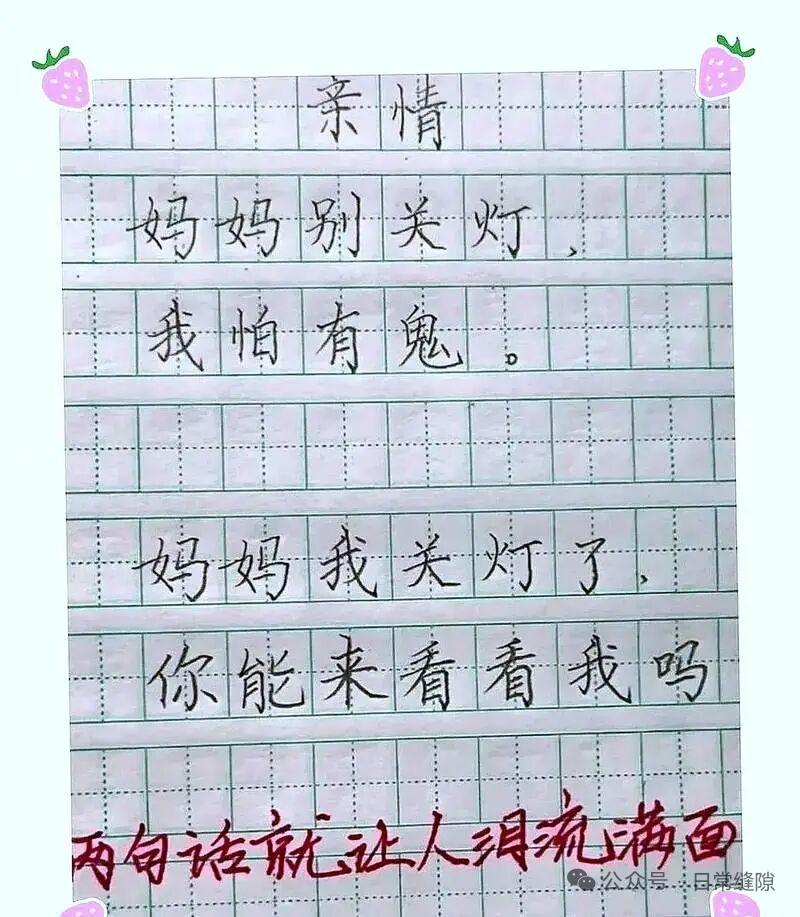 亲情
妈妈别关灯，
我怕有鬼。
妈妈我关灯了，
你能来看看我吗
两句话就让人泪流满面
公众号 · 日常缝隙